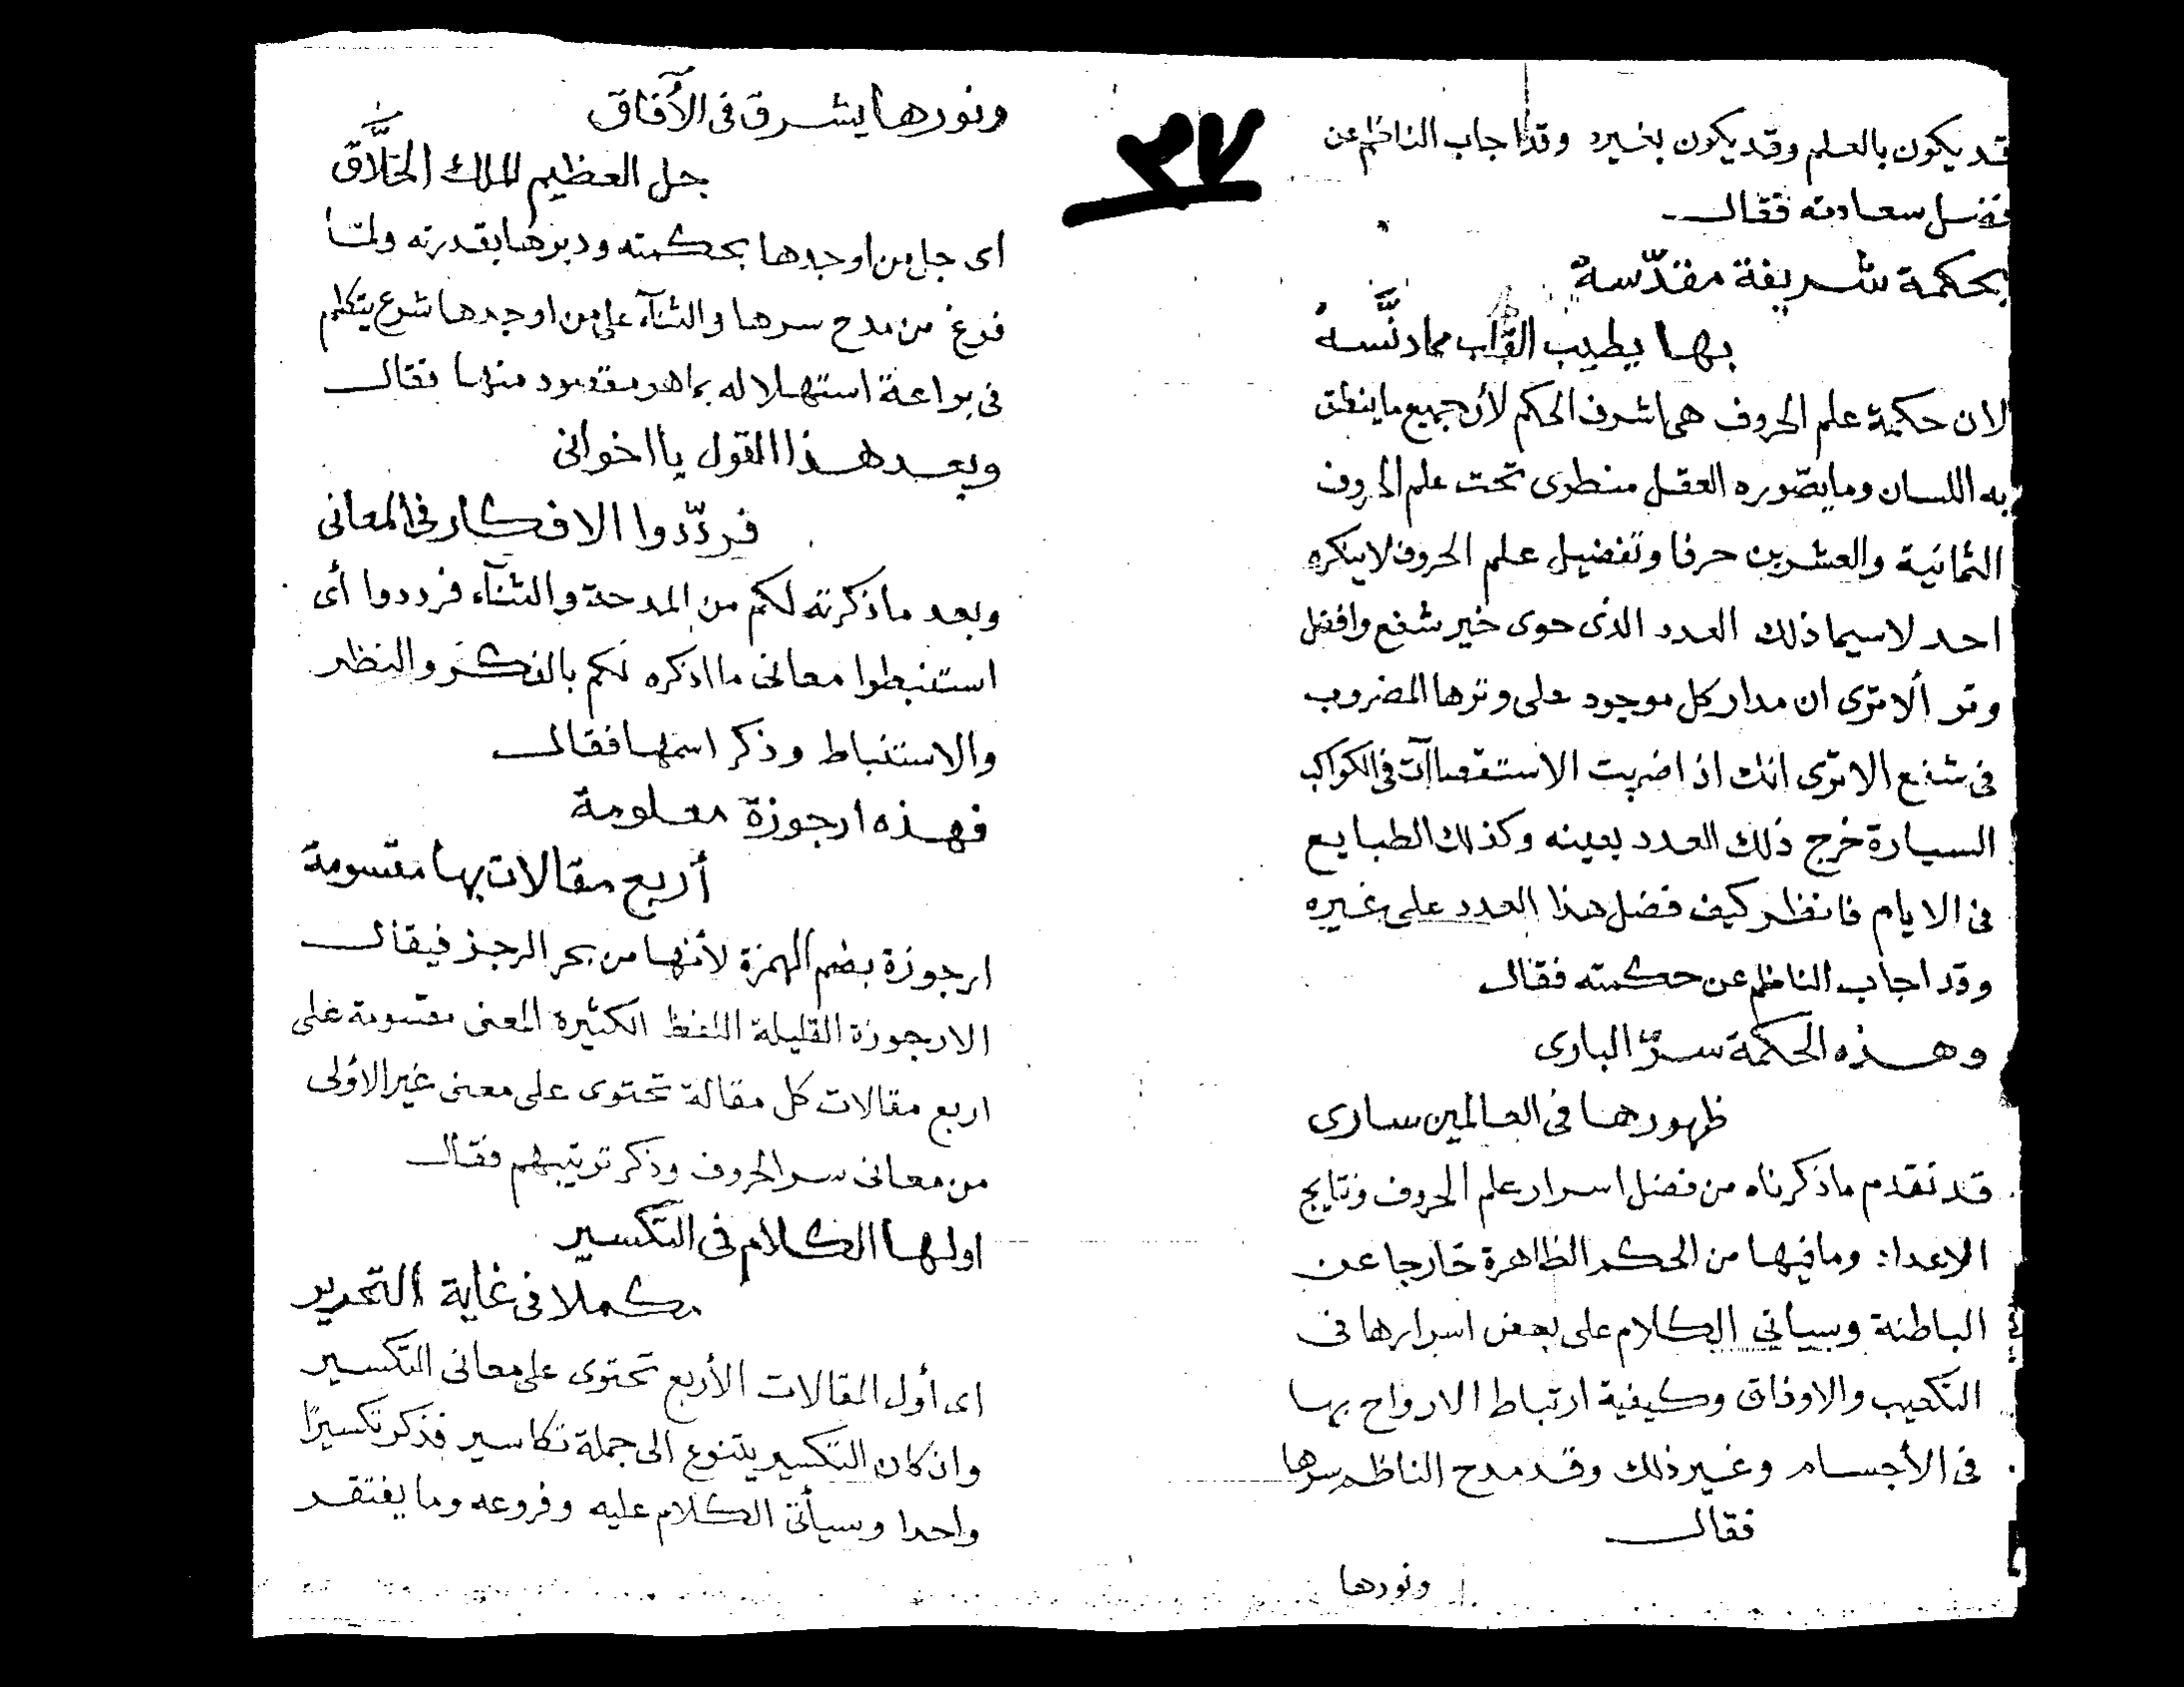 قد يكون بالعلم وقد يكون بغيره وقد اجاب الناظم عن
فضل سعادته فقال
بحكمة شريفة مقدّسة
بها يطيب القلب مما دنَّسهُ
لان حكمة علم الحروف هى اشرف الحكم لأن جميع ما ينطق
به اللسان وما يصّوره العقل منطوى تحت علم الحروف
الثمانية والعشرين حرفا وتفضيل علم الحروف لا ينكره
احد لاسيما ذلك العدد الذى حوى خير شفع وافضل
وتر ألا ترى ان مدار كل موجود على وترها المضروب
فى شفع الا ترى انك اذا ضربت الاستقصاآت فى الكواكب
السيارة خرج ذلك العدد بعينه وكذلك الطبايع
فى الايام فانظر كيف فضل هذا العدد على غيره
وقد اجاب الناظم عن حكمته فقال
وهذه الحكمة سرّ البارى
ظهورها فى العالمين سارى
قد تقدم ما ذكرناه من فضل اسرار علم الحروف ونتايج
الاعداد وما فيها من الحكم الظاهرة خارجا عن
الباطنة وسياتى الكلام على بعض اسرارها فى
التكعيب والاوفاق وكيفية ارتباط الارواح بها
فى الأجسام وغير ذلك وقد مدح الناظم سرها
فقال
ونورها
٣٧
ونورها يشرق فى الآفاق
جل العظيم الملك الخلَّاق
اى جل من اوجدها بحكمته ودبرها بقدرته ولمّا
فرغ من مدح سرها والثنآء على من اوجدها شرع يتكلم
فى براعة استهلاله بما هو مقصود منها فقال
وبعد هذا القول يا اخوانى
فردّدوا الافكار فى المعانى
وبعد ما ذكرته لكم من المدحة والثنآء فرددوا أى
استنبطوا معانى ما اذكره لكم بالفكر والنظر
والاستنباط وذكر اسمها فقال
فهذه ارجوزة معلومة
أربع مقالات بها مقسومة
ارجوزة بضم الهمزة لأنها من بحر الرجز فيقال
الارجوزة القليلة اللفظ الكثيرة المعنى مقسومة على
اربع مقالات كل مقالة تحتوى على معنى غير الأولى
من معانى سر الحروف وذكر ترتيبهم فقال
اولها الكلام فى التكسير
مكملا فى غاية التحرير
اى أول المقالات الأربع تحتوى على معانى التكسير
وان كان التكسير يتنوع الى جملة تكاسير فذكر تكسيرًا
واحدا وسيأتى الكلام عليه وفروعه وما يفتقر